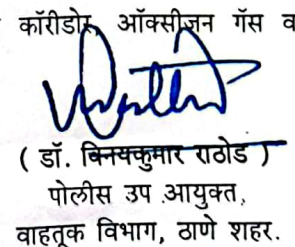 कॉरीडोर, ऑक्सीजन गॅस व
( डॉ. विनयकुमार राठोड )
पोलीस उप आयुक्त,
वाहतूक विभाग, ठाणे शहर.